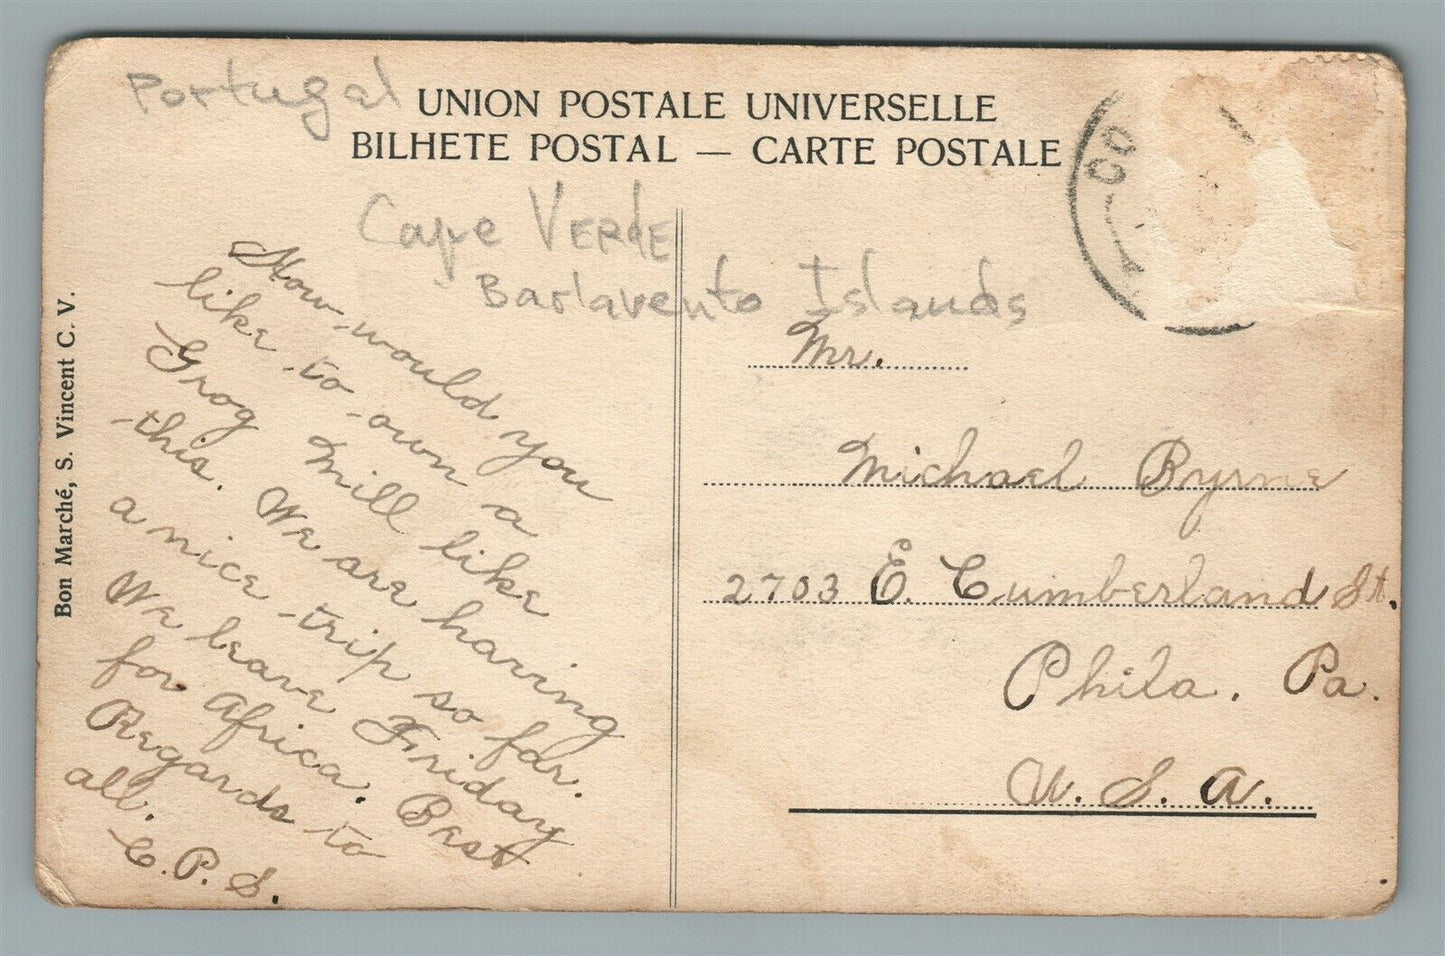 Portugal
UNION POSTALE UNIVERSELLE
BILHETE POSTAL — CARTE POSTALE
Cape VERdE
Barlavento Islands
CO
Bon Marché, S. Vincent C. V.
How would you
like to own a
Grog Mill like
this. We are having
a nice trip so far.
We leave Friday
for Africa. Best
Regards to
all.
C. P. S.
Mr.
Michael Byrne
2703 E. Cumberland St.
Phila. Pa.
U. S. A.